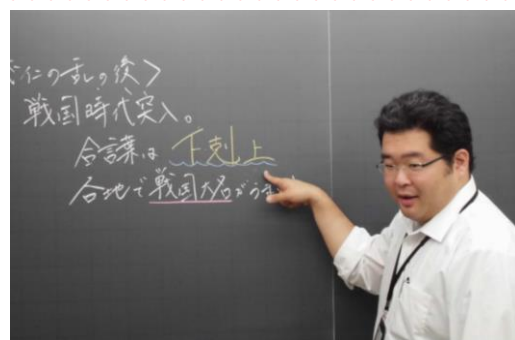 仁の乱の後〉
戦国時代突入。
合言葉は 下剋上
各地で戦国大名がうま